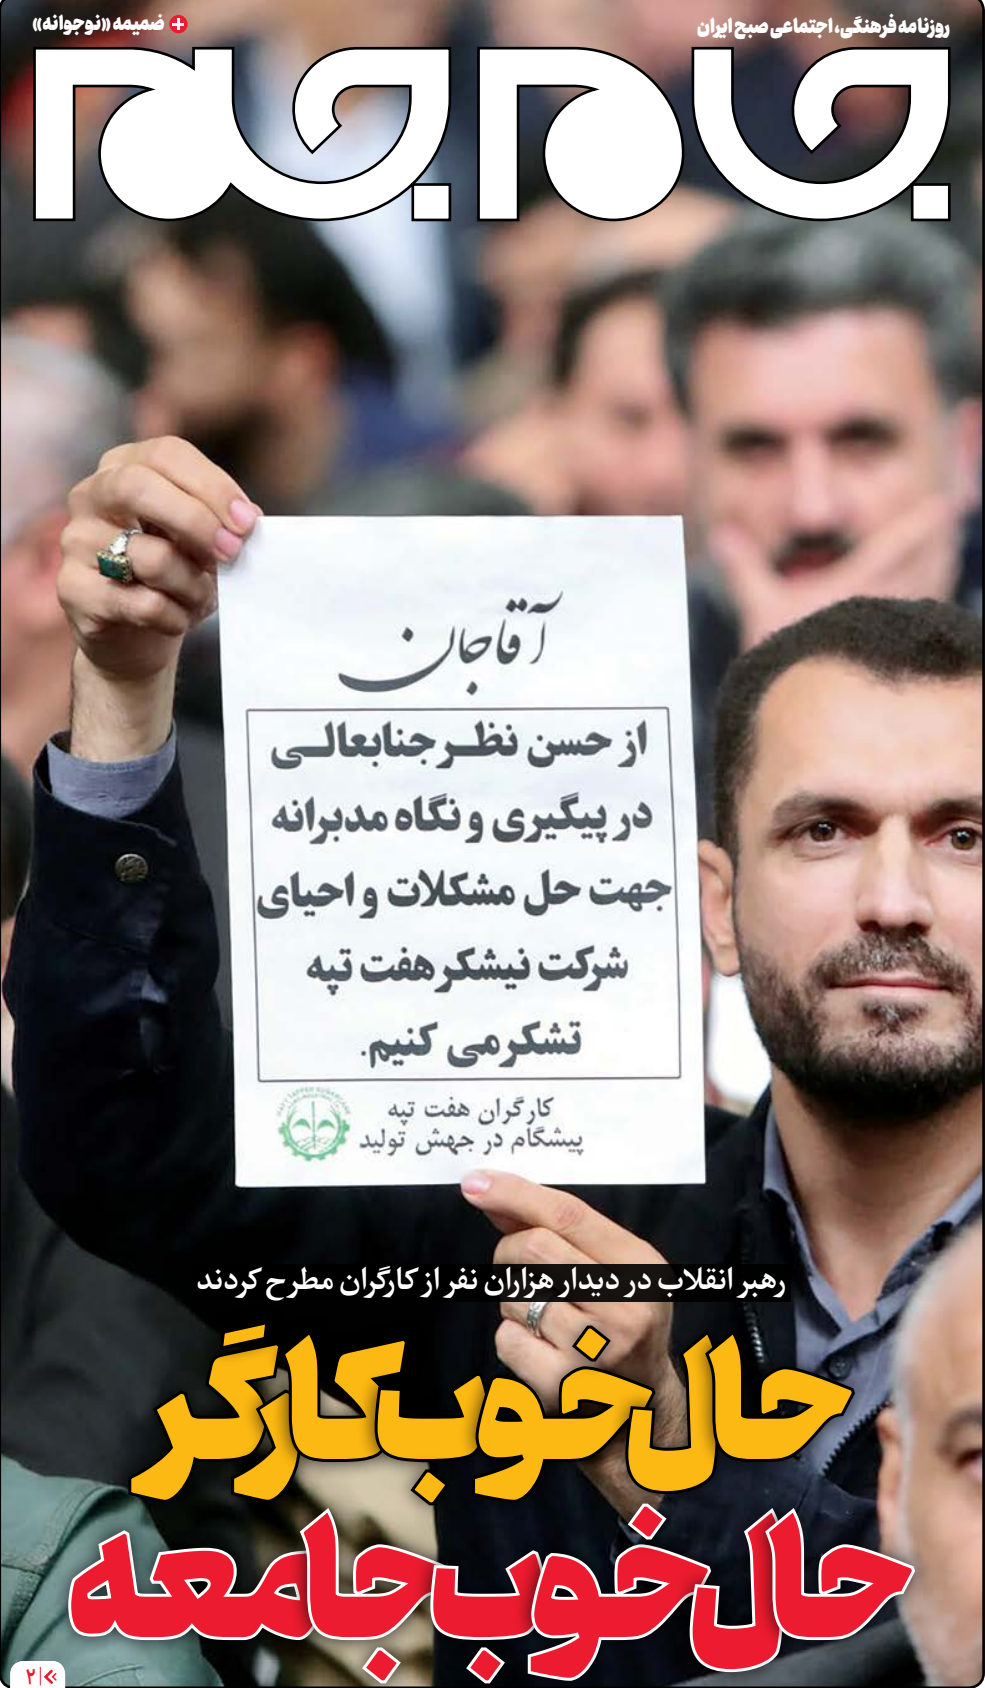 روزنامه فرهنگی، اجتماعی صبح ایران
+ ضمیمه «نوجوانه»
جام جم
آقاجان
از حسن نظر جنابعالی
در پیگیری و نگاه مدبرانه
جهت حل مشکلات و احیای
شرکت نیشکر هفت تپه
تشکر می کنیم.
کارگران هفت تپه
پیشگام در جهش تولید
رهبر انقلاب در دیدار هزاران نفر از کارگران مطرح کردند
حال خوب کارگر
حال خوب جامعه
۲